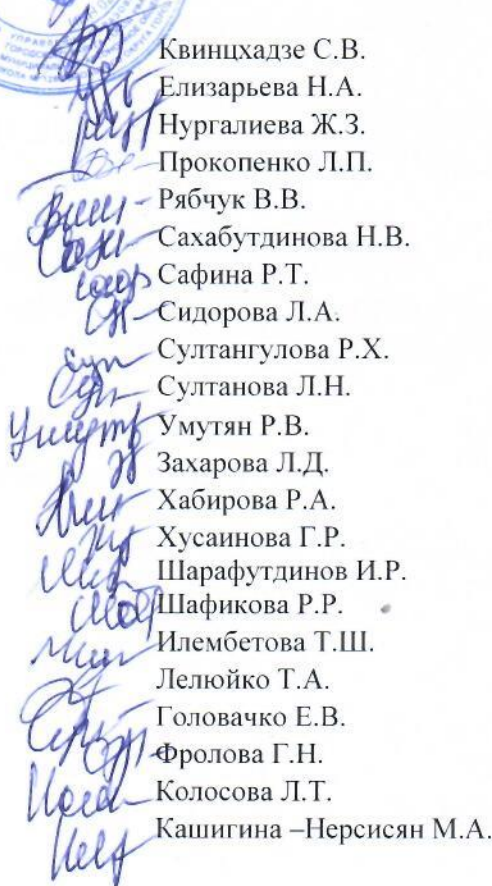 Квинцхадзе С.В.
Елизарьева Н.А.
Нургалиева Ж.З.
Прокопенко Л.П.
Рябчук В.В.
Сахабутдинова Н.В.
Сафина Р.Т.
Сидорова Л.А.
Султангулова Р.Х.
Султанова Л.Н.
Умутян Р.В.
Захарова Л.Д.
Хабирова Р.А.
Хусаинова Г.Р.
Шарафутдинов И.Р.
Шафикова Р.Р.
Илембетова Т.Ш.
Лелюйко Т.А.
Головачко Е.В.
Фролова Г.Н.
Колосова Л.Т.
Кашигина –Нерсисян М.А.